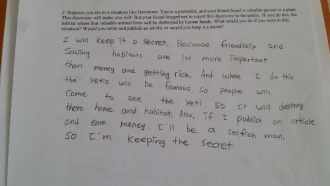 2. Suppose you are in a situation like Genevieve. You're a journalist, and your friend found a valuable animal or a plant.
This discovery will make you rich! But your friend begged not to report this discovery to the public. If you do this, the
habitat where that valuable animal lives will be destroyed by human hands. What would you do if you were in this
situation? Would you write and publish an article, or would you keep it a secret?
I will keep it a secret. Because friendship and
Saving habitats are lot more important
than money and getting rich. And when I do this
the yetis will be famous, so people will
come to see the Yeti. So it will destroy
there home and habitat. Also, if I publish an article
and earn money I'll be a selfish man.
So I'm keeping the secret